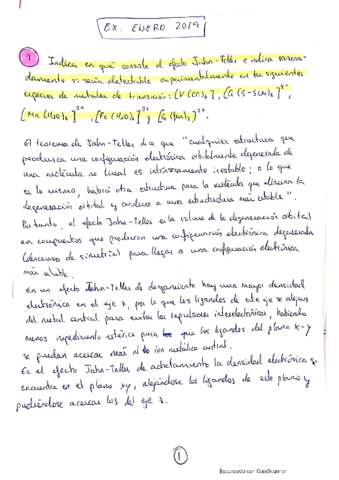 EX. ENERO 2019
1 Indica en qué consiste el efecto Jahn-Teller e indica razona-
damente si sería detectable experimentalmente en las siguientes
especies de metales de transición: (V(CO)6),
(Mn(H2O)6)3+, (Fe(H2O)6)3+,
El teorema de Jahn-Teller dice que "cualquier estructura que
produzca una configuración electrónica orbitalmente degenerada de
una molécula no lineal es intrínsecamente inestable; o lo que
es lo mismo, habrá otra estructura para la molécula que elimina la
degeneración orbital y conduce a una estructura más estable".
Por tanto, el efecto Jahn-Teller es la rotura de la degeneración orbital
en compuestos que producen una configuración electrónica degenerada
(descenso de simetría) para llegar a una configuración electrónica
más estable.
En un efecto Jahn-Teller de alargamiento hay una mayor densidad
electrónica en el eje z, por lo que los ligandos de este eje se alejan
del metal central para evitar las repulsiones interelectrónicas, habiendo
menos impedimento estérico para que los ligandos del plano x-y
se puedan acercar más al ion metálico central.
En el efecto Jahn-Teller de achatamiento la densidad electrónica se
encuentra en el plano xy, alejándose los ligandos de este plano y
pudiéndose acercar los del eje z.
1
Escaneado con CamScanner